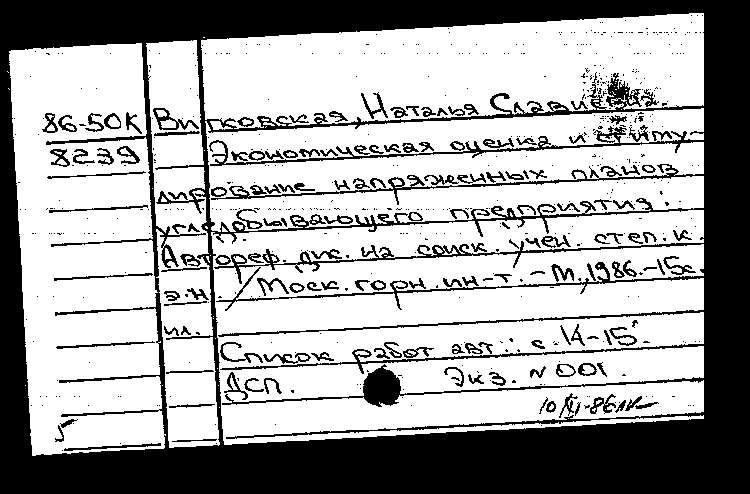 86-50К Витковская, Наталья Славиевна.
8239 Экономическая оценка и стиму-
лирование напряженных планов
угледобывающего предприятия:
Автореф. дис. на соиск. учен. степ. к.
э.н. / Моск. горн. ин-т. - М., 1986. - 15с.
ил.
Список работ авт.: с. 14-15.
ДСП. Экз. N 001.
10/XI-86
5